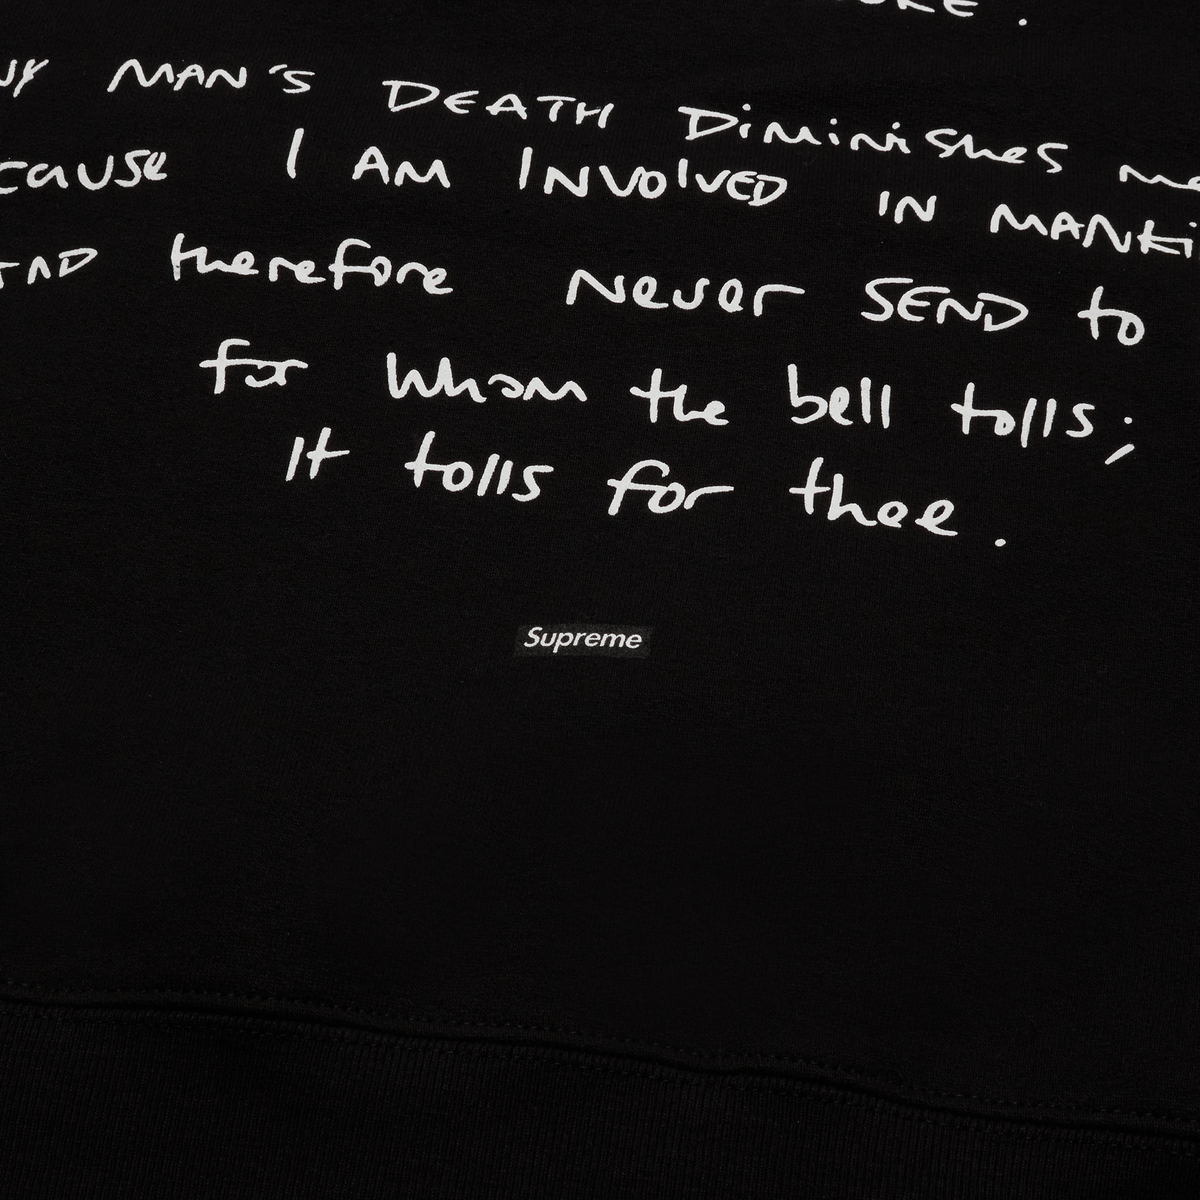 MAN'S DEATH Diminishes me
I AM INVOLVED IN
therefore Never SEND to
for whom the bell tolls;
It tolls for thee.
Supreme